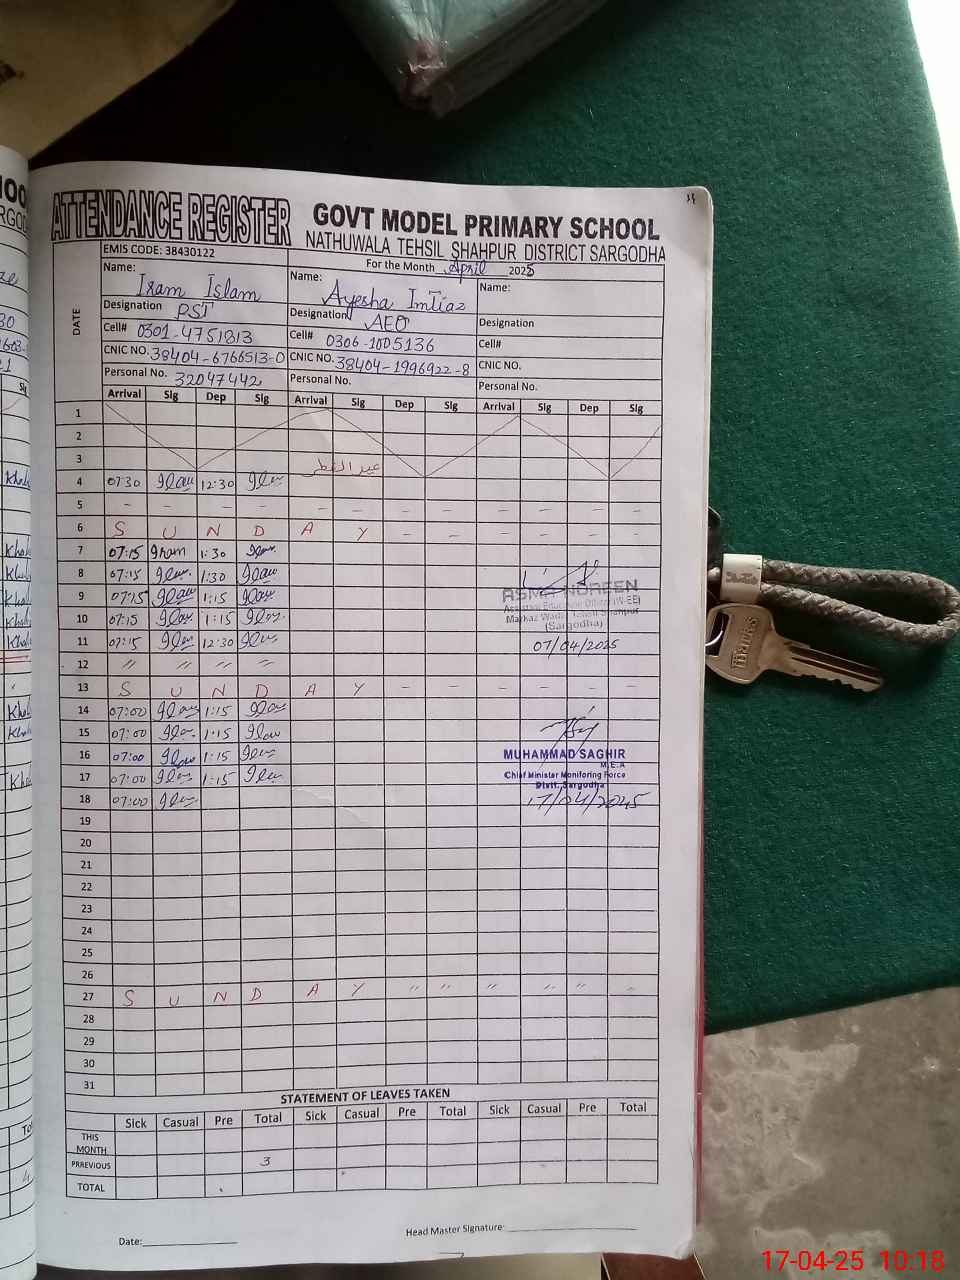 ATTENDANCE REGISTER
GOVT MODEL PRIMARY SCHOOL
NATHUWALA TEHSIL SHAHPUR DISTRICT SARGODHA
EMIS CODE: 38430122
For the Month April 2025
DATE
Name: Iram Islam Name: Ayesha Imtiaz Name:
Designation PST Designation AEO Designation
Cell# 0301-4751813 Cell# 0306-1005136 Cell#
CNIC NO. 38404-6766513-0 CNIC NO. 38404-1996922-8 CNIC NO.
Personal No. 32047442 Personal No. Personal No.
Arrival Sig Dep Sig Arrival Sig Dep Sig Arrival Sig Dep Sig
1
2
3 عید الفطر
4 07:30 12:30
5 - - - - - - - - - - - -
6 S U N D A Y - - - - - -
7 07:15 Iram 1:30
8 07:15 1:30
9 07:15 1:15
10 07:15 1:15
11 07:15 12:30
ASMA NOREEN
Assistant Education Officer (W-EE)
Markaz Wadhi Tehsil Shahpur
(Sargodha)
07/04/2025
12 〃 〃 〃 〃
13 S U N D A Y - - - - - -
14 07:00 1:15
15 07:00 1:15
16 07:00 1:15
17 07:00 1:15
18 07:00
MUHAMMAD SAGHIR
M.E.A
Chief Minister Monitoring Force
Distt. Sargodha
17/04/2025
19
20
21
22
23
24
25
26
27 S U N D A Y 〃 〃 〃 〃 〃 〃
28
29
30
31
STATEMENT OF LEAVES TAKEN
Sick Casual Pre Total Sick Casual Pre Total Sick Casual Pre Total
THIS MONTH
PRREVIOUS 3
TOTAL
Date:
Head Master Signature:
17-04-25 10:18